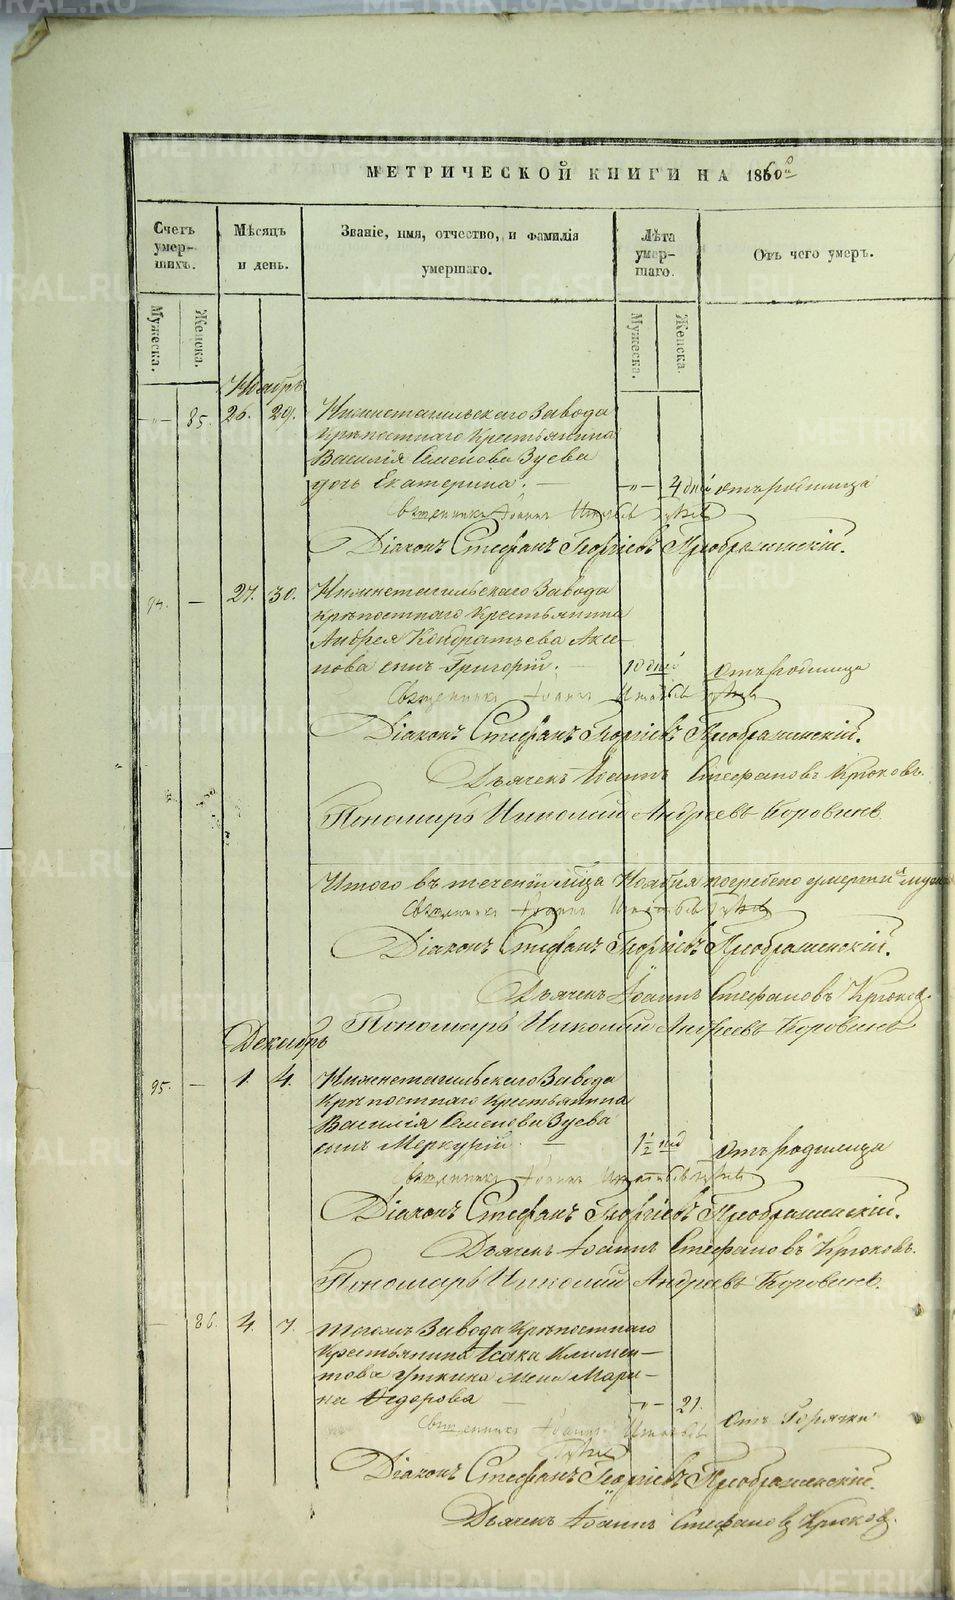 МЕТРИЧЕСКОЙ КНИГИ НА 1860й
Счетъ умер-шихъ.
Мѣсяцъ и день.
Званіе, имя, отчество, и фамилія умершаго.
Лѣта умер-шаго.
Отъ чего умеръ.
Мужеска.
Женска.
Мужеска.
Женска.
Ноябрь
— 85. 26. 29. Нижнетагильскаго Завода
Крѣпостнаго Крестьянина
Василія Семенова Зуева
дочь Екатерина. — „ — 4 дней отъ родимца
Священникъ Іоаннъ
Діаконъ Стефанъ Георгіевъ Преображенскій.
94. — 27. 30. Нижнетагильскаго Завода
Крѣпостнаго Крестьянина
Андрея Кондратьева Аки-
нова сынъ Григорій. — 10 дней отъ родимца
Священникъ Іоаннъ
Діаконъ Стефанъ Георгіевъ Преображенскій.
Дьячекъ Іоаннъ Стефановъ Крюковъ.
Пономарь Николай Андреевъ Боровинъ
Итого въ теченіи м-ца Ноября погребено умершихъ
Священникъ Іоаннъ
Діаконъ Стефанъ Георгіевъ Преображенскій.
Дьячекъ Іоаннъ Стефановъ Крюковъ.
Пономарь Николай Андреевъ Боровинъ
Декабрь
95. — 1. 4. Нижнетагильскаго Завода
Крѣпостнаго Крестьянина
Василія Семенова Зуева
сынъ Меркурій. — 1½ нед отъ родимца
Священникъ Іоаннъ
Діаконъ Стефанъ Георгіевъ Преображенскій.
Дьячекъ Іоаннъ Стефановъ Крюковъ.
Пономарь Николай Андреевъ Боровинъ.
— 86. 4. 7. тогожъ Завода Крѣпостнаго
Крестьянина Исака Климен-
това Уткина жена Мари-
на Ѳедорова — „ — 21. отъ Горячки
Священникъ Іоаннъ
Діаконъ Стефанъ Георгіевъ Преображенскій.
Дьячекъ Іоаннъ Стефановъ Крюковъ.
METRIKI.GASO-URAL.RU